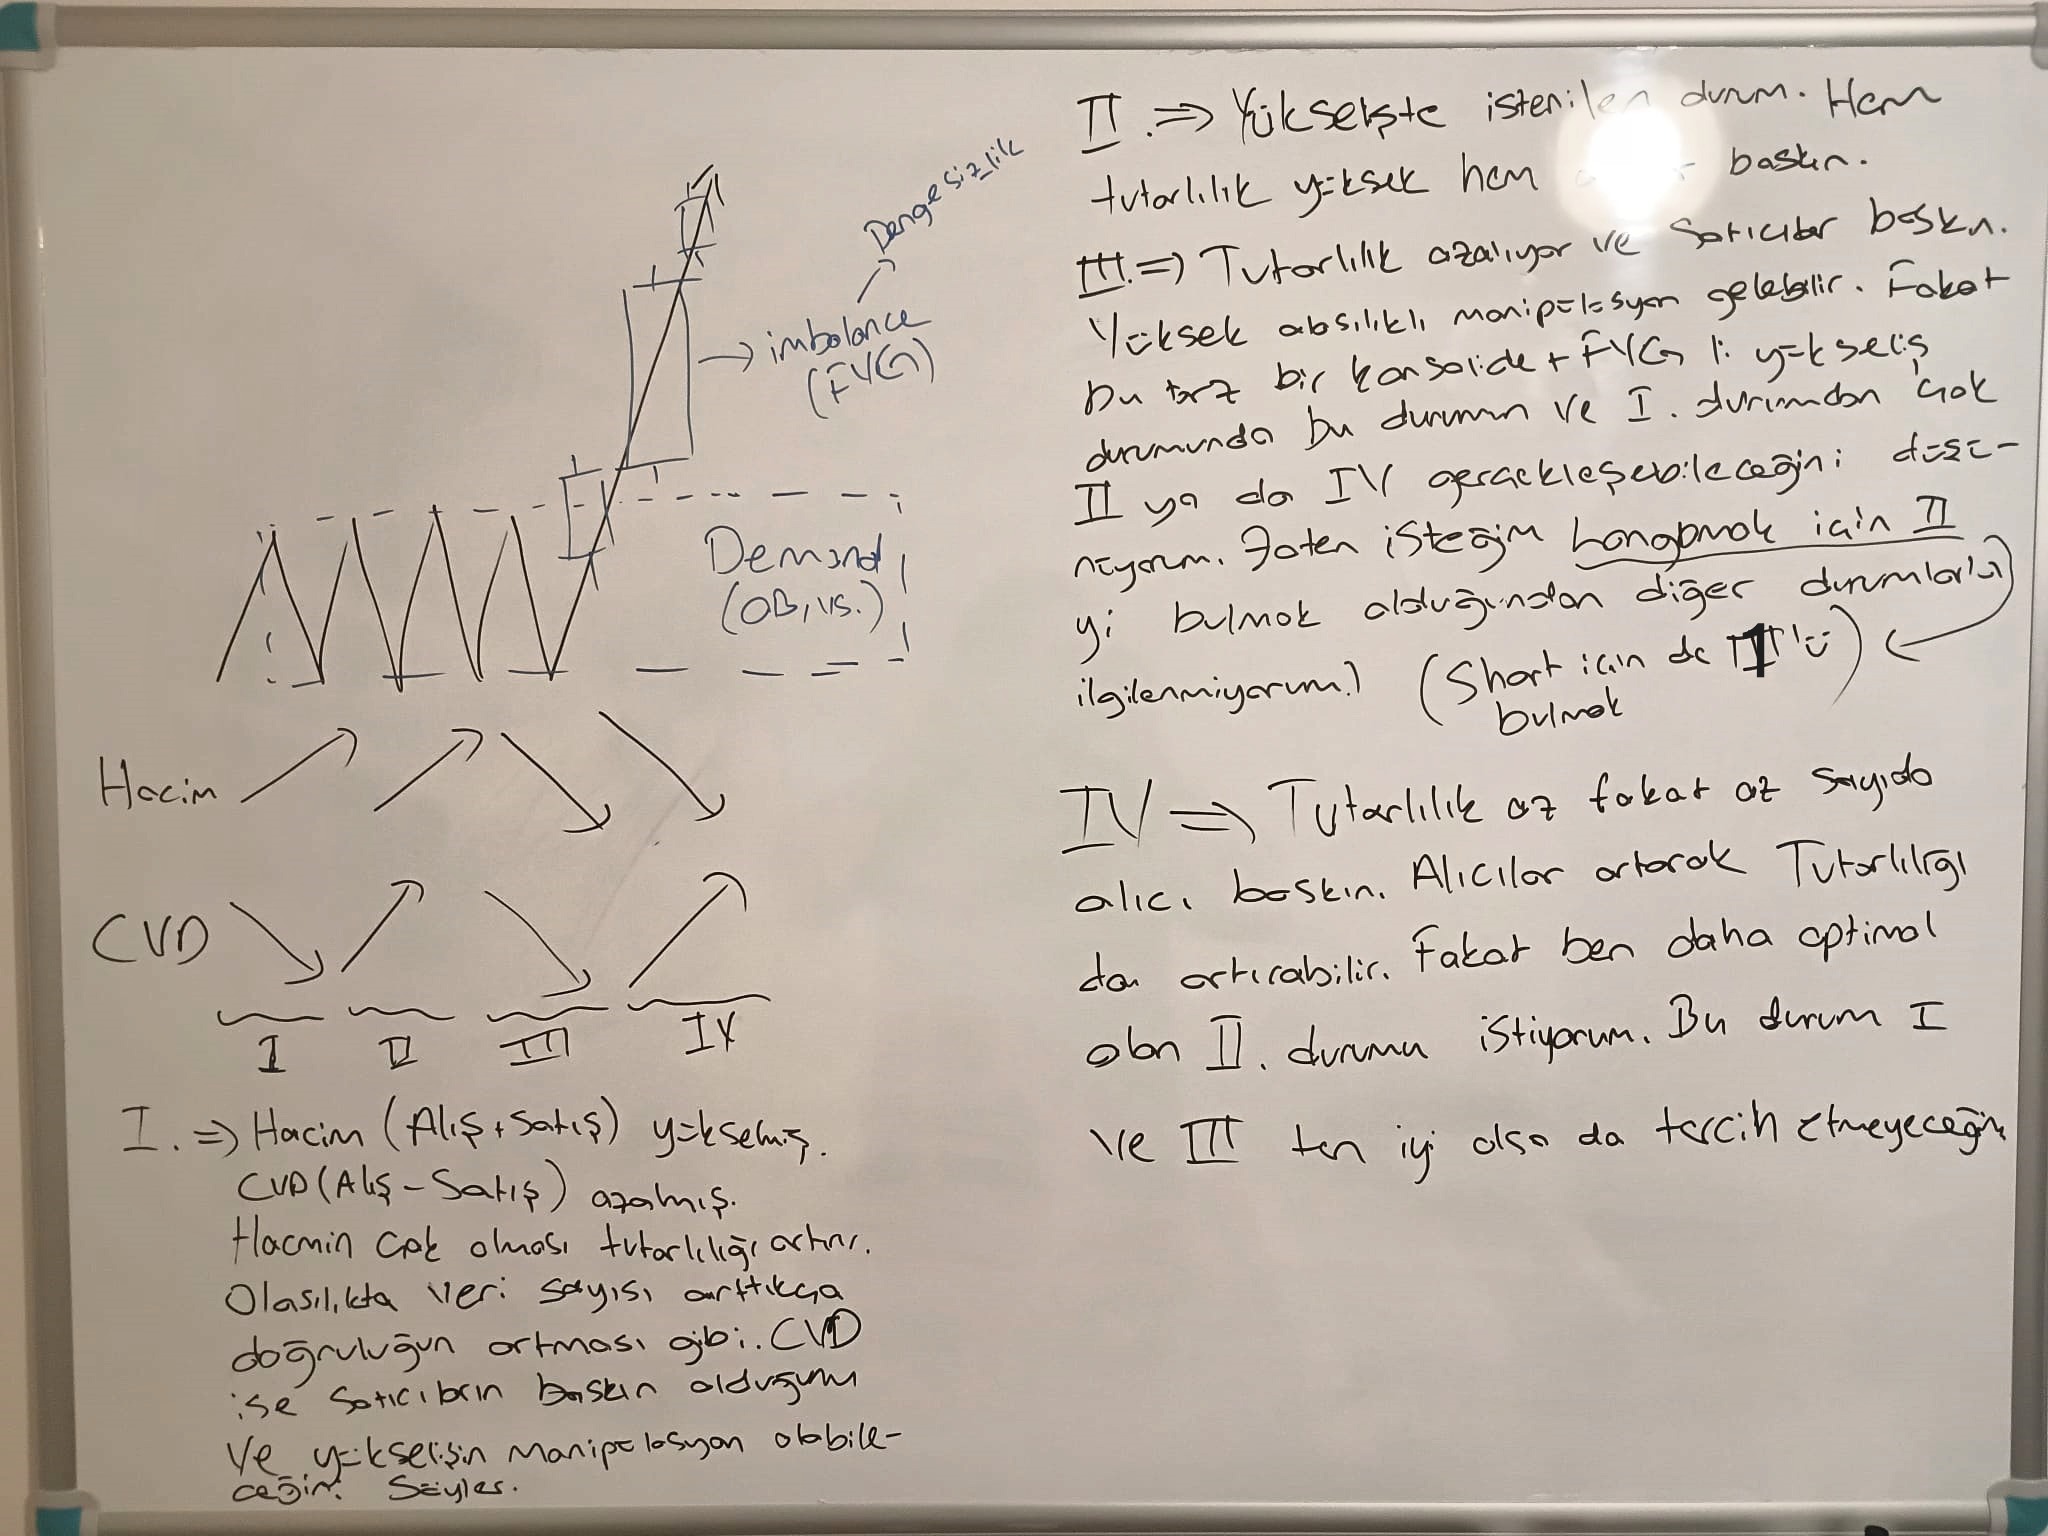 Dengesizlik
imbalance
(FVG)
Demand
(OB, vs.)
Hacim
CVD
I II III IV
I. => Hacim (Alış + Satış) yükselmiş.
CVD (Alış - Satış) azalmış.
Hacmin çok olması tutarlılığı artırır.
Olasılıkta veri sayısı arttıkça
doğruluğun artması gibi. CVD
ise satıcıların baskın olduğunu
ve yükselişin manipülasyon olabile-
ceğini söyler.
II. => Yükselişte istenilen durum. Hem
tutarlılık yüksek hem baskın.
III. => Tutarlılık azalıyor ve satıcılar baskın.
Yüksek olasılıklı manipülasyon gelebilir. Fakat
bu tarz bir konsolide + FVG li yükseliş
durumunda bu durumun ve I. durumdan çok
II ya da IV gerçekleşebileceğini düşü-
nüyorum. Zaten isteğim Long bmak için II
yi bulmak olduğundan diğer durumlarla
ilgilenmiyorum.) (Short için de III'ü)
bulmak
IV => Tutarlılık az fakat az sayıda
alıcı baskın. Alıcılar artarak Tutarlılığı
da artırabilir. Fakat ben daha optimal
olan II. durumu istiyorum. Bu durum I
ve III ten iyi olsa da tercih etmeyeceğim